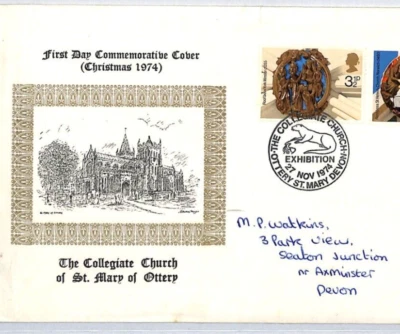 First Day Commemorative Cover
(Christmas 1974)
3½P
THE COLLEGIATE CHURCH
EXHIBITION
27 NOV 1974
OTTERY ST. MARY DEVON
M.P. Watkins,
3 Park View,
Seaton Junction
nr Axminster
Devon
The Collegiate Church
of St. Mary of Ottery